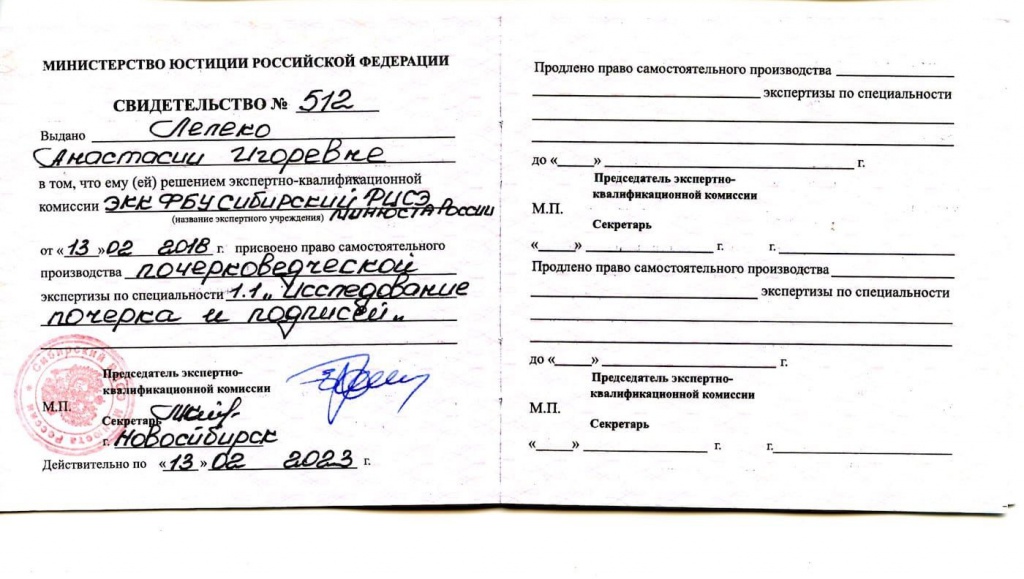 МИНИСТЕРСТВО ЮСТИЦИИ РОССИЙСКОЙ ФЕДЕРАЦИИ
СВИДЕТЕЛЬСТВО № 512
Выдано Лепеко
Анастасии Игоревне
в том, что ему (ей) решением экспертно-квалификационной
комиссии ЭКК ФБУ Сибирский РЦСЭ
(название экспертного учреждения) Минюста России
от «13» 02 2018 г. присвоено право самостоятельного
производства почерковедческой
экспертизы по специальности 1.1 „Исследование
почерка и подписей„
Председатель экспертно-
квалификационной комиссии
М.П.
Секретарь
г. Новосибирск
Действительно по «13» 02 2023 г.
Продлено право самостоятельного производства
экспертизы по специальности
до «____» г.
Председатель экспертно-
квалификационной комиссии
М.П.
Секретарь
«____» г. г.
Продлено право самостоятельного производства
экспертизы по специальности
до «____» г.
Председатель экспертно-
квалификационной комиссии
М.П.
Секретарь
«____» г. г.